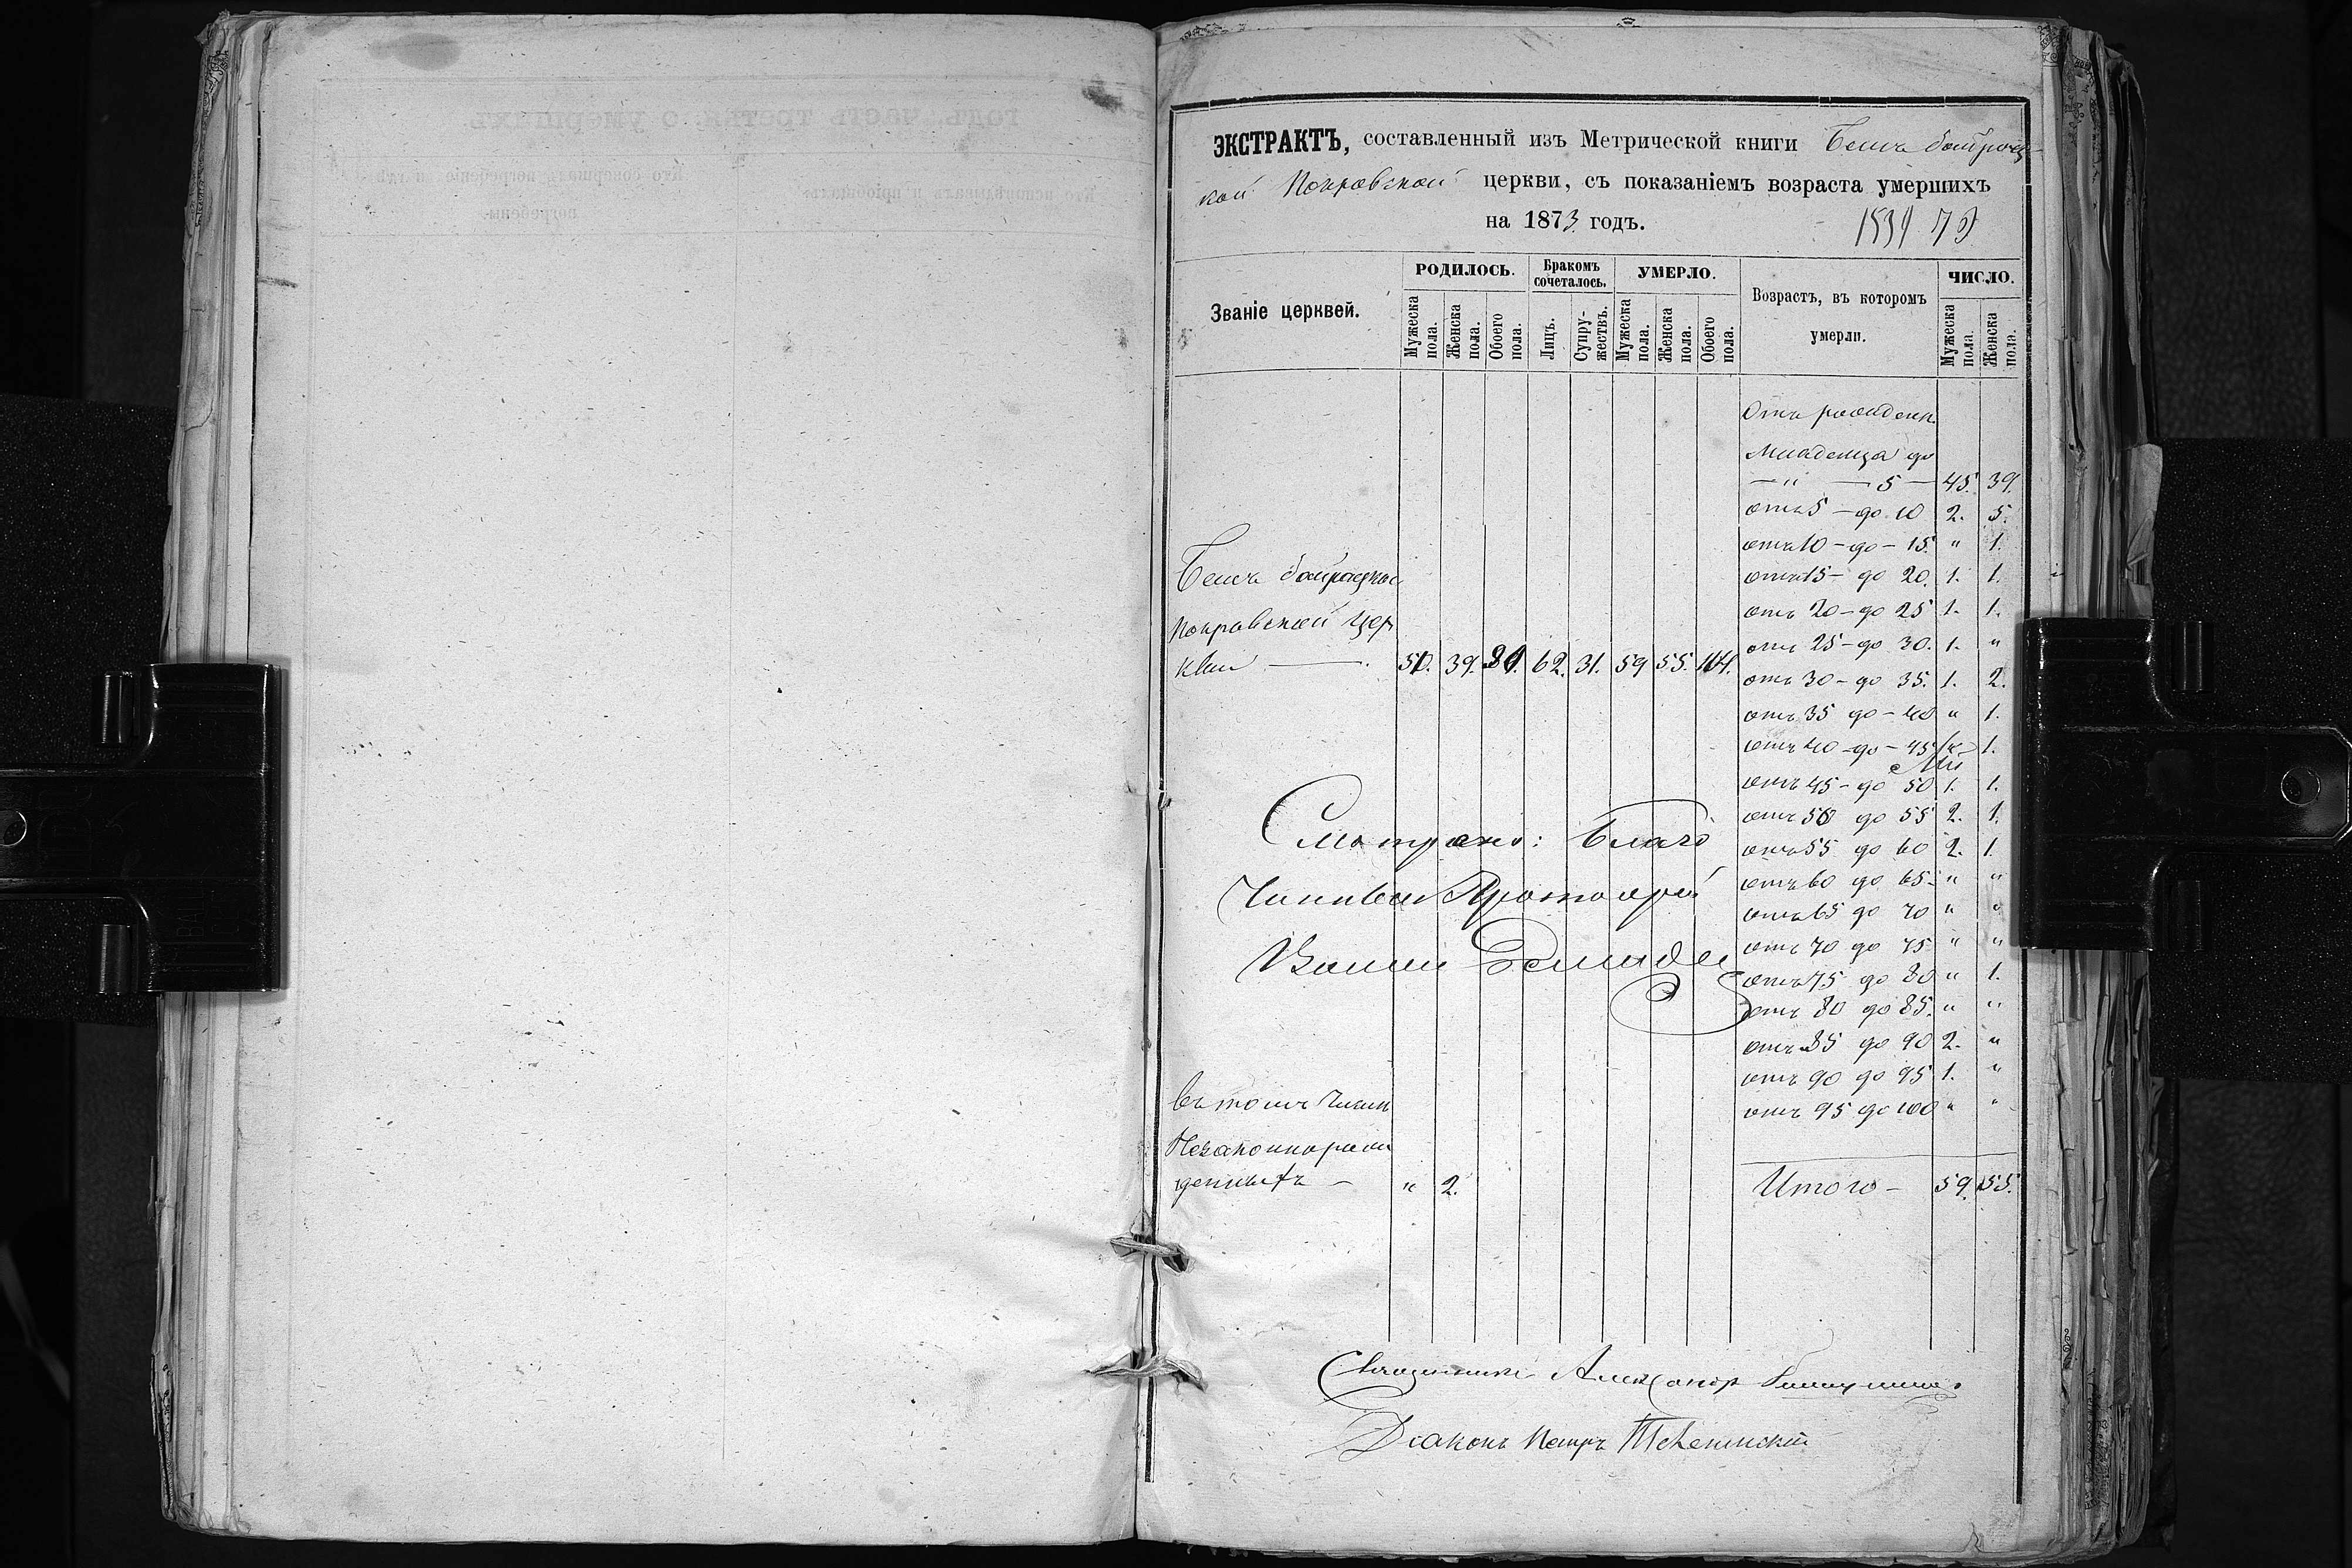 ЭКСТРАКТЪ, составленный изъ Метрической книги
кой Покровской церкви, съ показаніемъ возраста умершихъ
на 1873 годъ.
Званіе церквей.
РОДИЛОСЬ.
Мужеска пола.
Женска пола.
Обоего пола.
Бракомъ сочеталось.
Лицъ.
Супружествъ.
УМЕРЛО.
Мужеска пола.
Женска пола.
Обоего пола.
Возрастъ, въ которомъ умерли.
ЧИСЛО.
Мужеска пола.
Женска пола.
Отъ рожден.
Младенца до
— " — 5 — 45. 39.
отъ 5 — до 10 2. 5.
отъ 10 — до — 15. " 1.
отъ 15 — до 20. 1. 1.
отъ 20 — до 25 1. 1.
отъ 25 — до 30. 1. "
отъ 30 — до 35. 1. 2.
отъ 35 до — 40 " 1.
отъ 40 — до — 45 1.
отъ 45 — до 50 1. 1.
отъ 50 до 55 2. 1.
отъ 55 до 60 2. 1.
отъ 60 до 65 " "
отъ 65 до 70 " "
отъ 70 до 75 " "
отъ 75 до 80 " 1.
отъ 80 до 85. " "
отъ 85 до 90 2. "
отъ 90 до 95 1. "
отъ 95 до 100 " "
Итого — 59. 55.
Покровской Цер
кви — 39. 62. 31. 59 55. 114.
Смотрено: Благо
чинный Протоіерей
въ томъ числѣ
Незаконнорож
денныхъ — " 2.
Священникъ Александр
Діаконъ Петръ